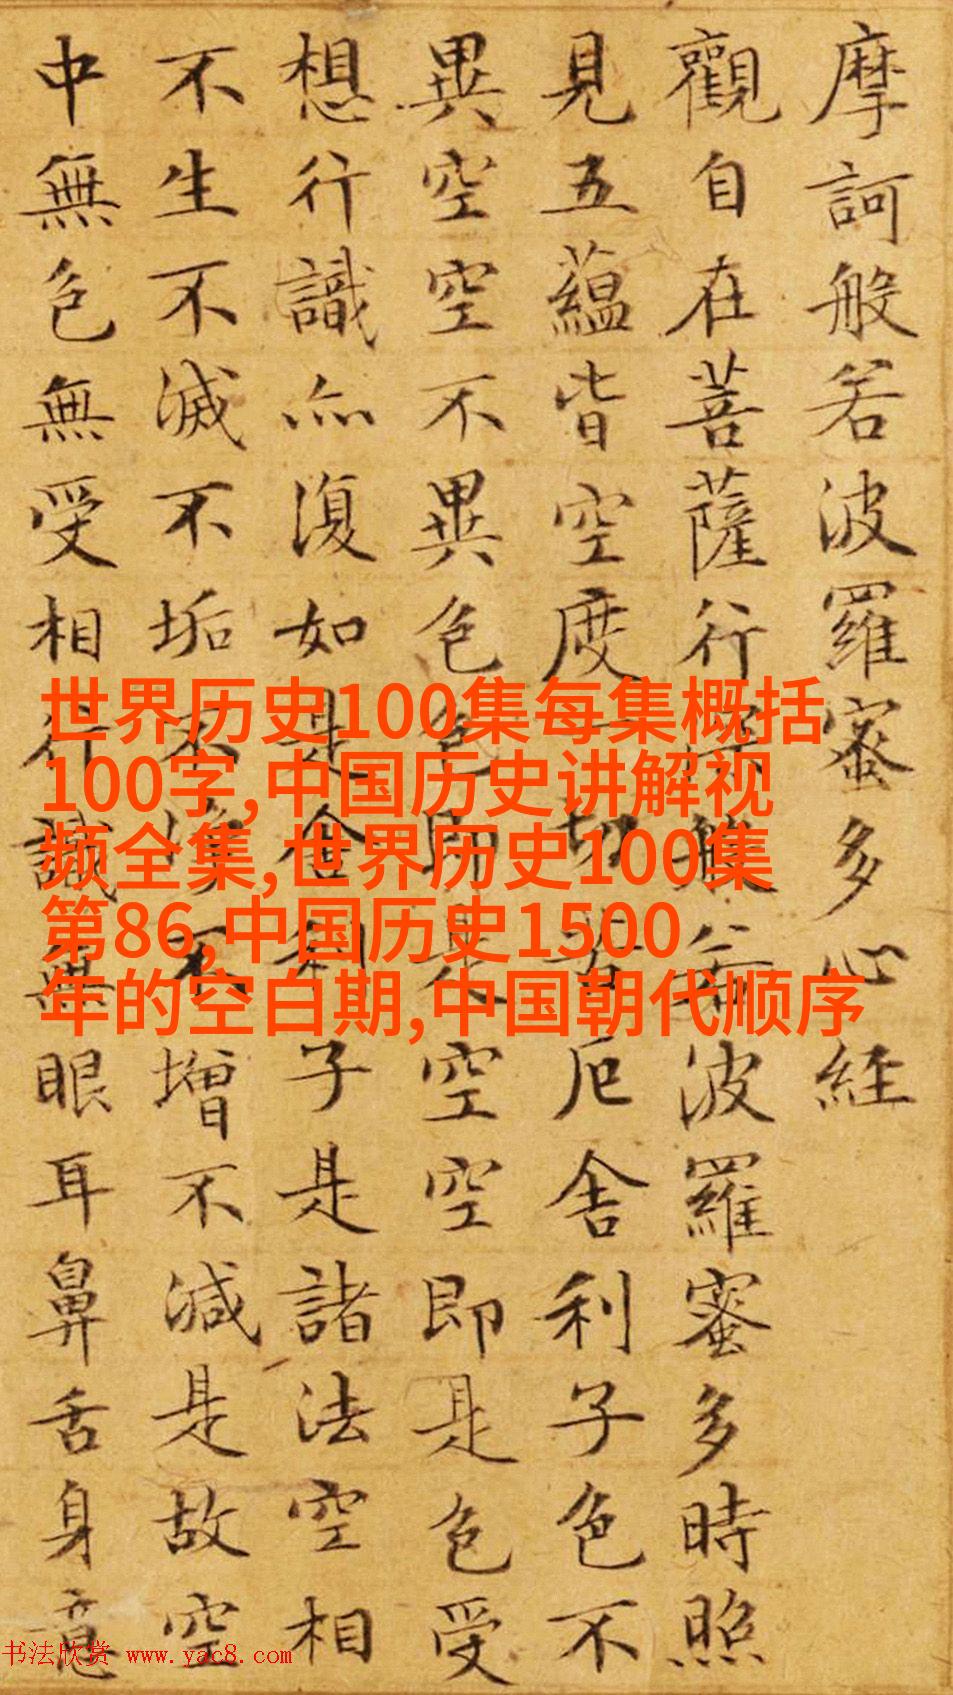 摩訶般若波羅蜜多心経
觀自在菩薩行深般若波羅蜜多時照
見五蘊皆空度一切苦厄舍利子色不
異空空不異色色即是空空即是色受
想行識亦復如是舍利子是諸法空相
不生不滅不垢不淨不增不減是故空
中無色無受相行識無眼耳鼻舌身意
世界历史100集每集概括
100字,中国历史讲解视
频全集,世界历史100集
第86,中国历史1500
年的空白期,中国朝代顺序
书法欣赏 www.yac8.com